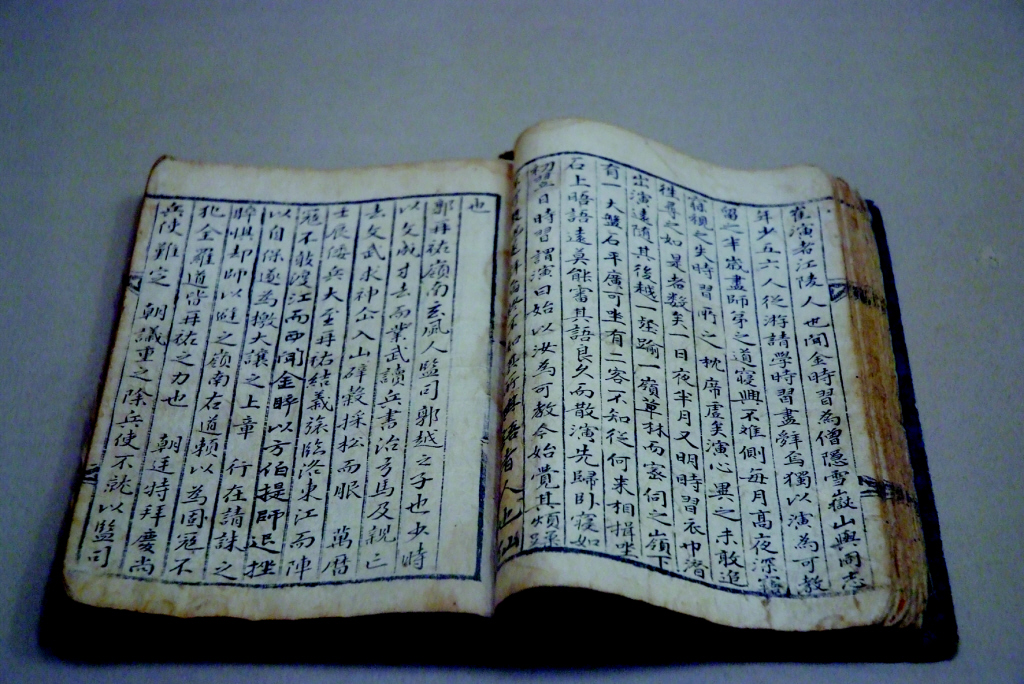 崔演者江陵人也聞金時習為僧隱雪嶽山與同志
年少五六人從游請學時習盡辭焉獨以演為可教
留之半歲盡師弟之道寢興不離側每月高夜深
之失時習所之枕席虛矣演心異之未敢追
往尋之如是者數矣一日夜半月又明時習衣巾潛
出演遠隨其後越一壑踰一嶺草林而密伺之嶺下
有一大盤石平廣可坐有二客不知從何来相揖坐
石上晤語遠莫能審其語良久而散演先歸卧寢如
初翌日時習謂演曰始以汝為可教今始覺其煩
也
郭再祐嶺南玄風人監司郭越之子也少時
以文成才去而業武讀兵書治弓馬及親亡
去文武求神仚入山辟穀採松而服 萬曆
壬辰倭兵大至再祐結義旅臨洛東江而陣
寇不敢渡江而西聞金睟以方伯提師退挫
以自保遂為檄大讓之上章 行在請誅之
睟惧却師以避之嶺南右道賴以為固寇不
犯全羅道皆再祐之力也 朝廷特拜慶尚
兵使難定 朝議重之除兵使不就以監司